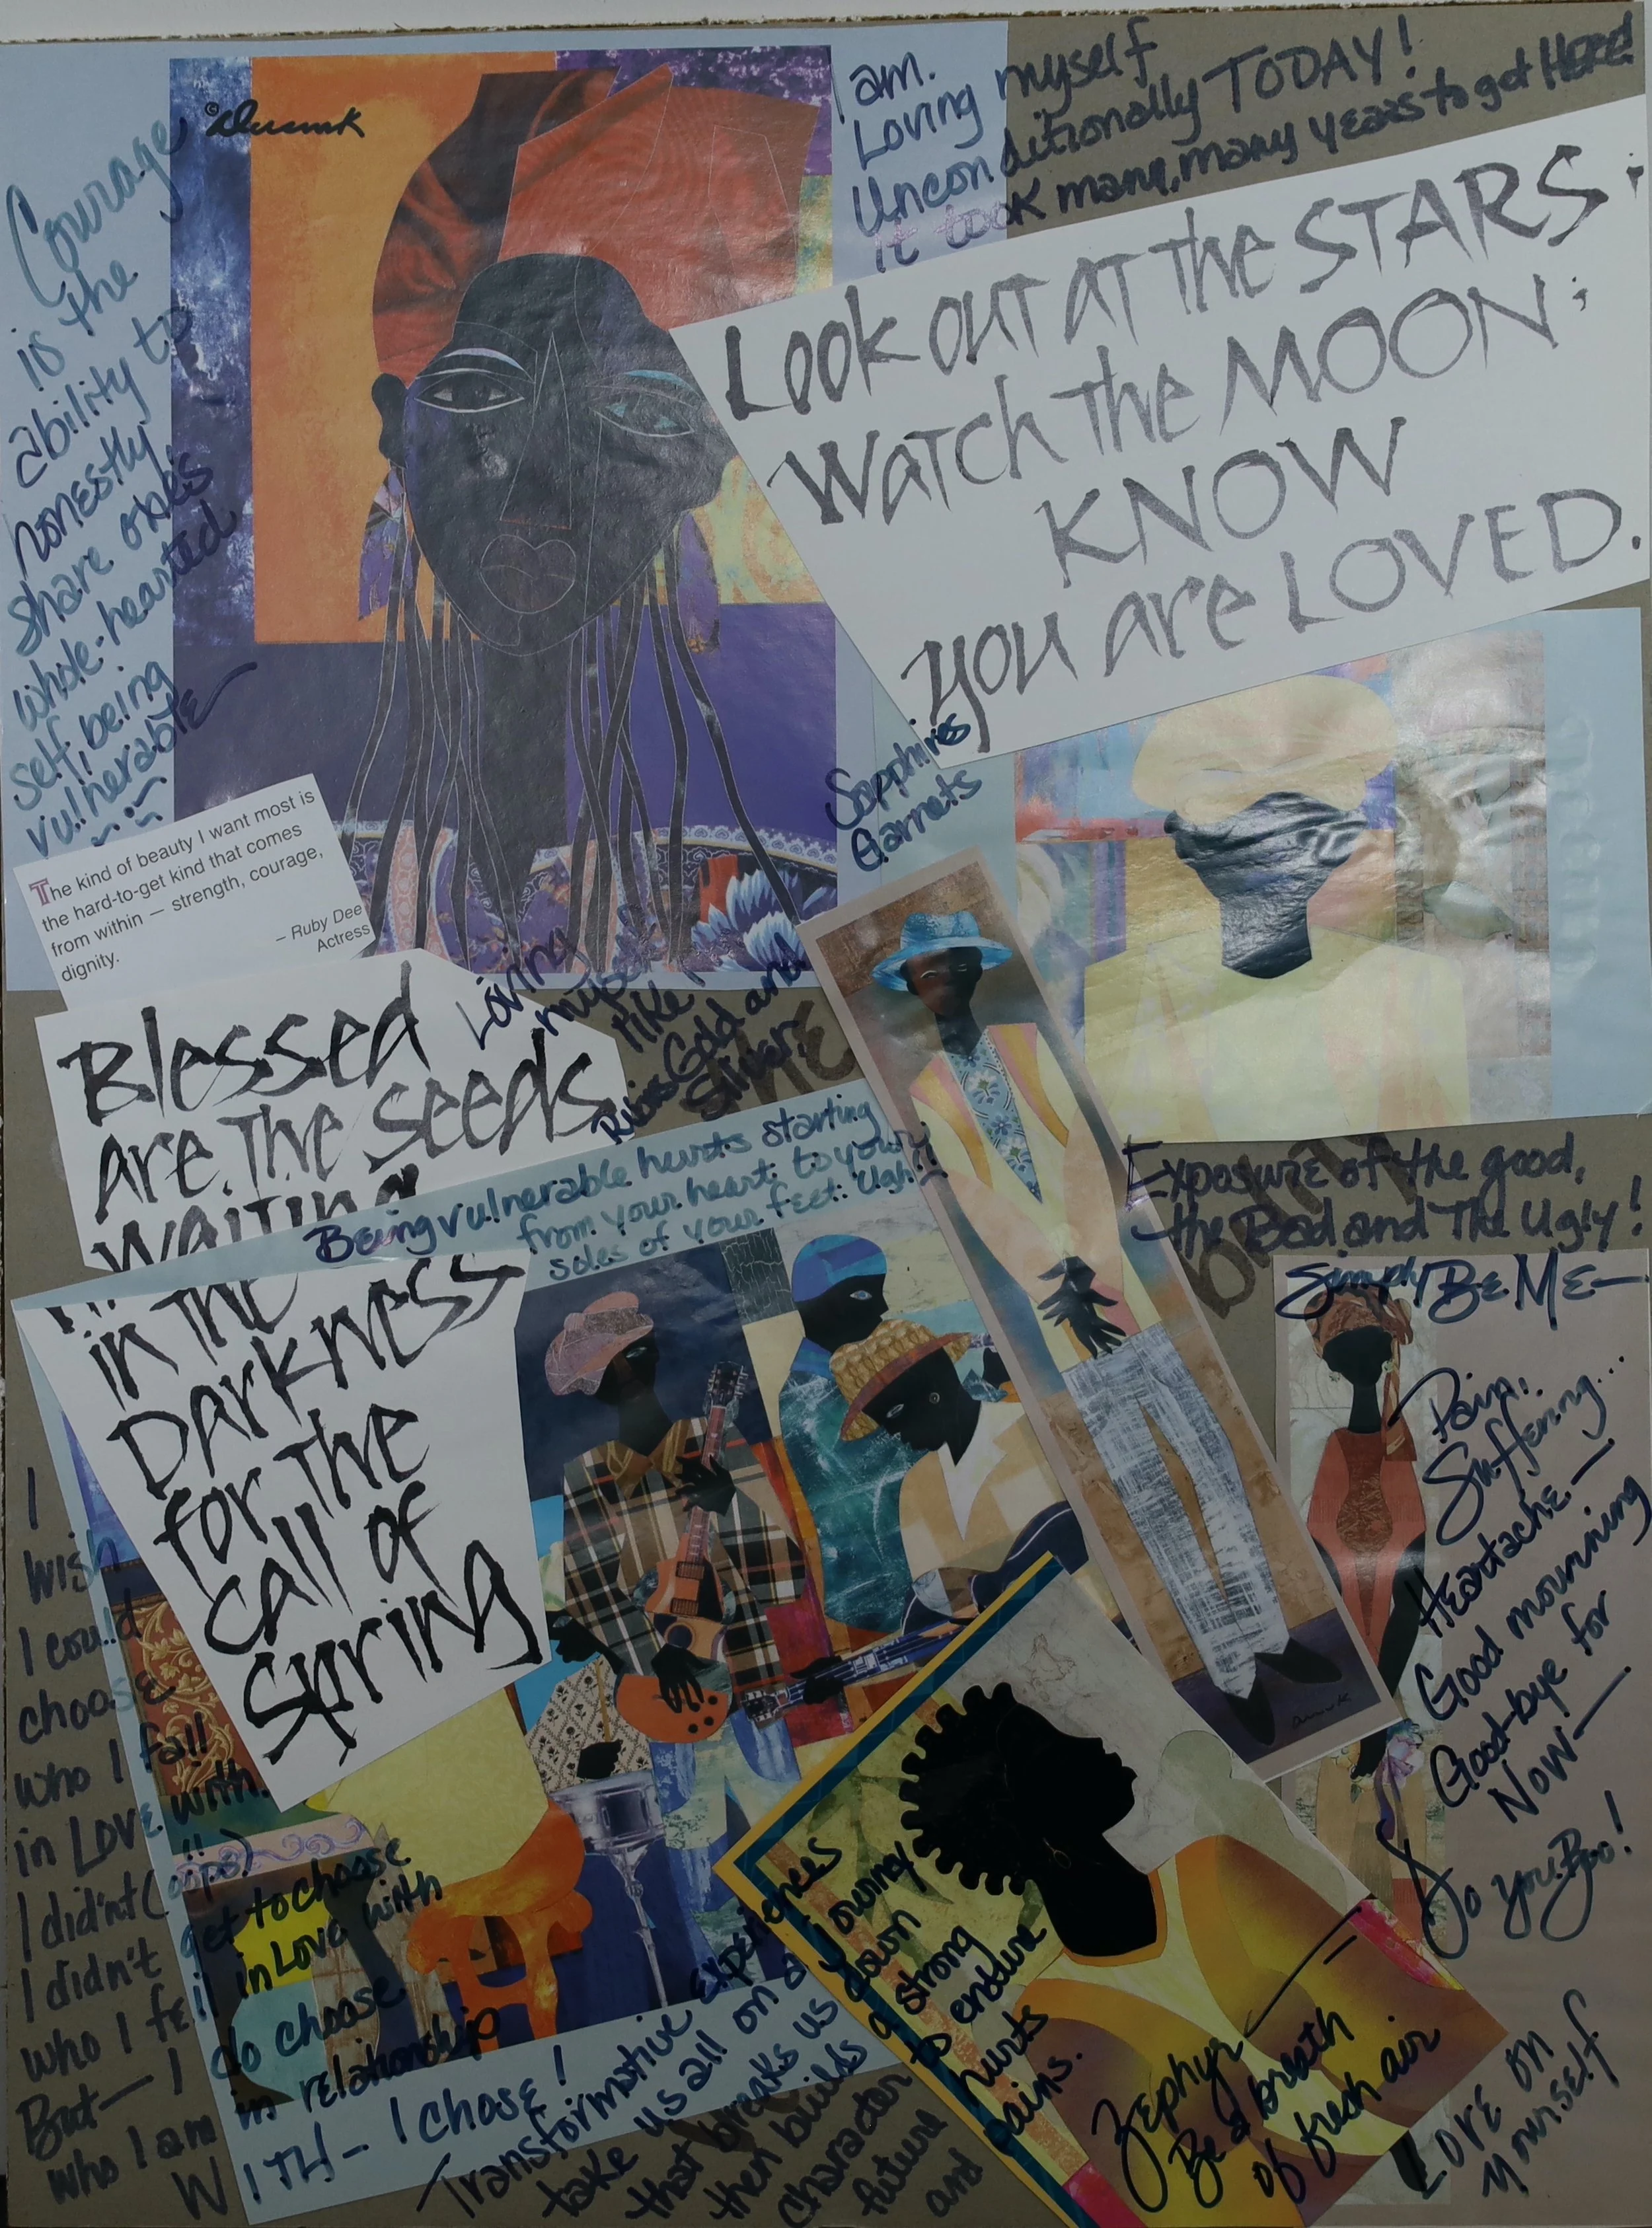 Courage
is the
ability to
honestly
share ones
whole-hearted
self, being
vulnerable
I am.
Loving myself
Unconditionally TODAY!
It took many, many years to get HERE!
Look out at the STARS;
Watch the MOON;
KNOW
you are LOVED.
The kind of beauty I want most is
the hard-to-get kind that comes
from within — strength, courage,
dignity.
– Ruby Dee
Actress
Sapphires
Garnets
Loving
myself
like
Rubies Gold and
Silver.
Blessed
are the seeds
waiting
in the
Darkness
for the
call of
spring
Being vulnerable hurts starting
from your heart to your
soles of your feet. Ugh!!
Exposure of the good,
the Bad, and The Ugly!
Simply Be ME—
Pain,
Suffering...
Heartache—
Good mourning
Good-bye for
Now—
Do You Boo!
Love on
Yourself
I
wish
I could
choose
who I fall
in Love with.
I did'nt (oops)
I didn't get to choose
who I fell in Love with
But— I do choose
who I am in relationship
WITH— I chose!
Transformative Experiences
take us all on a journey
that breaks us down
then builds a strong
character to endure
future hurts
and pains.
Zephyr—
Be a breath
of fresh air